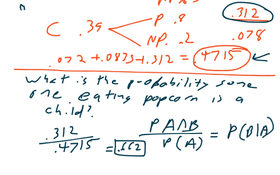 .312
P .8
C .39
NP. .2
.078
.072 + .0875 + .312 = .4715
What is the probability some
one eating popcorn is a
child?
.312 / .4715 = .662
P A∩B / P(A) = P(B|A)